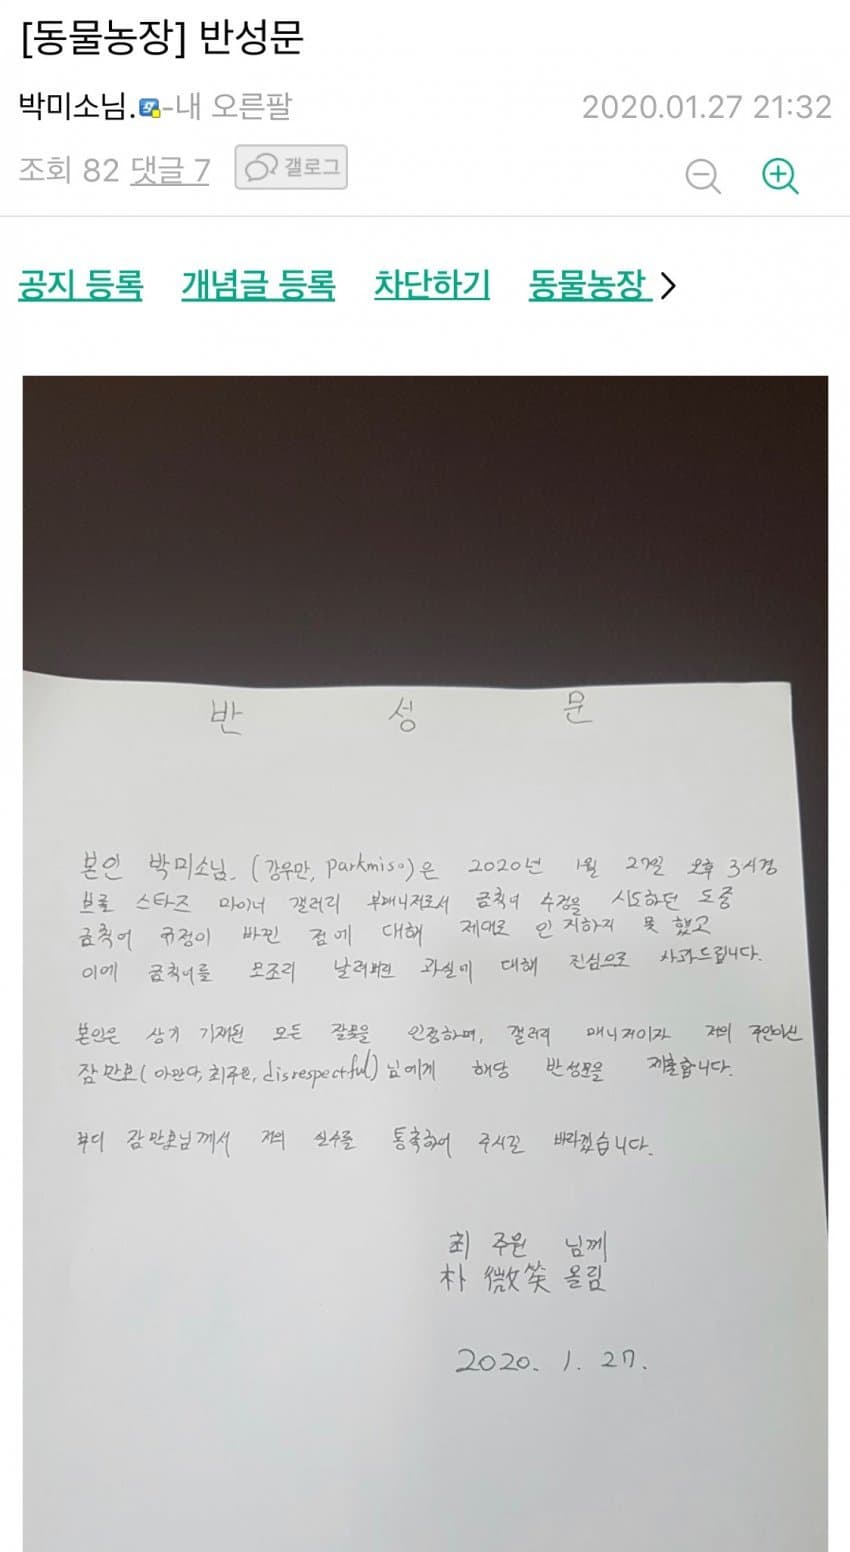 [동물농장] 반성문
박미소님.-내 오른팔 2020.01.27 21:32
조회 82 댓글 7 갤로그
공지 등록 개념글 등록 차단하기 동물농장
반 성 문
본인 박미소님. (강우만, parkmiso)은 2020년 1월 27일 오후 3시경
브롤 스타즈 마이너 갤러리 부매니저로서 금칙어 수정을 시도하던 도중
금칙어 규정이 바뀐 점에 대해 제대로 인지하지 못 했고
이에 금칙어를 모조리 날려버린 과실에 대해 진심으로 사과드립니다.
본인은 상기 기재된 모든 잘못을 인정하며, 갤러리 매니저이자 저의 주인이신
잠만보(아만다, 최주원, disrespectful)님에게 해당 반성문을 제출합니다.
부디 잠만보님께서 저의 실수를 통촉하여 주시길 바라겠습니다.
최 주원 님께
朴 微笑 올림
2020. 1. 27.